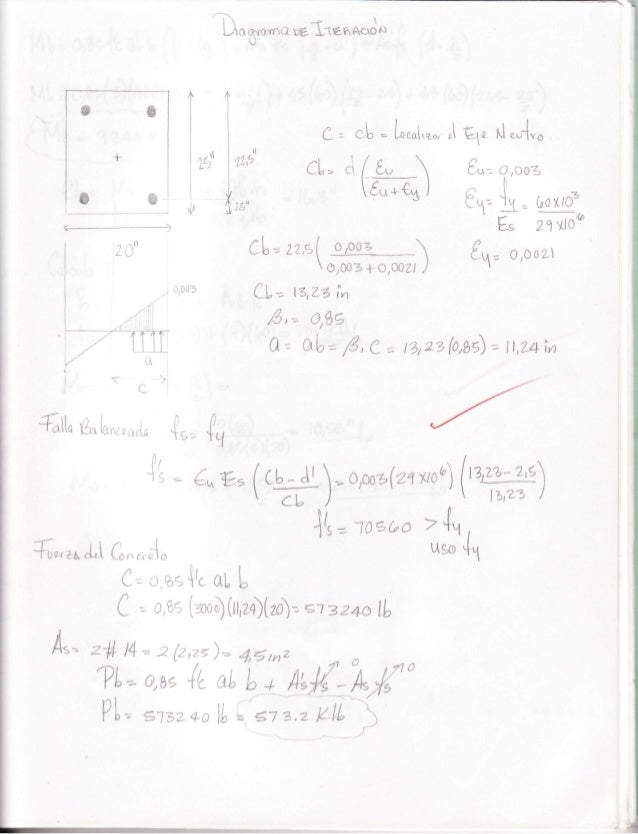 Diagrama DE ITERACIÓN
25" 22,5"
2.5"
20"
C = cb = Localizar el Eje Neutro
Cb = d (Eu / Eu + Ey)
Eu = 0,003
Ey = fy / Es = 60x10³ / 29x10⁶
Cb = 22,5 (0,003 / 0,003 + 0,0021)
Ey = 0,0021
0,003
Cb = 13,23 in
β₁ = 0,85
a = ab = β₁ C = 13,23 (0,85) = 11,24 in
a
c
Falla Balanceada fs = fy
f's = Eu Es (Cb - d' / Cb) = 0,003 (29x10⁶) (13,23 - 2,5 / 13,23)
f's = 70560 > fy
uso fy
Fuerza del Concreto
C = 0,85 f'c ab b
C = 0,85 (3000) (11,24) (20) = 573240 lb
As = 2 # 14 = 2 (2,25) = 4,5 in²
Pb = 0,85 f'c ab b + A's f's - As fs 0 0
Pb = 573240 lb = 573.2 Klb